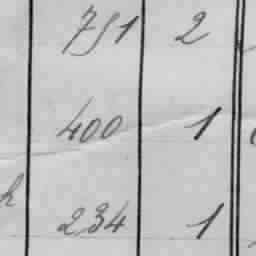 751 2
400 1
h 234 1